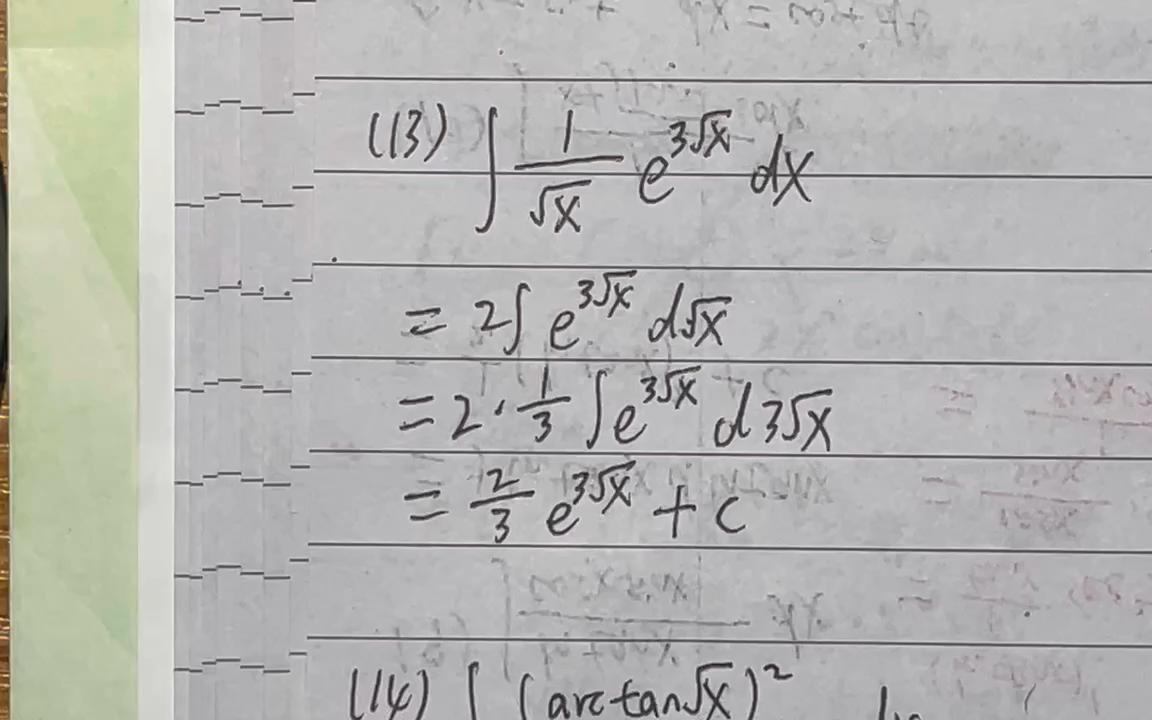 (13) ∫ 1/√x e^{3√x} dx
= 2∫ e^{3√x} d√x
= 2 · 1/3 ∫ e^{3√x} d3√x
= 2/3 e^{3√x} + c
(14) ∫ (arctan√x)²